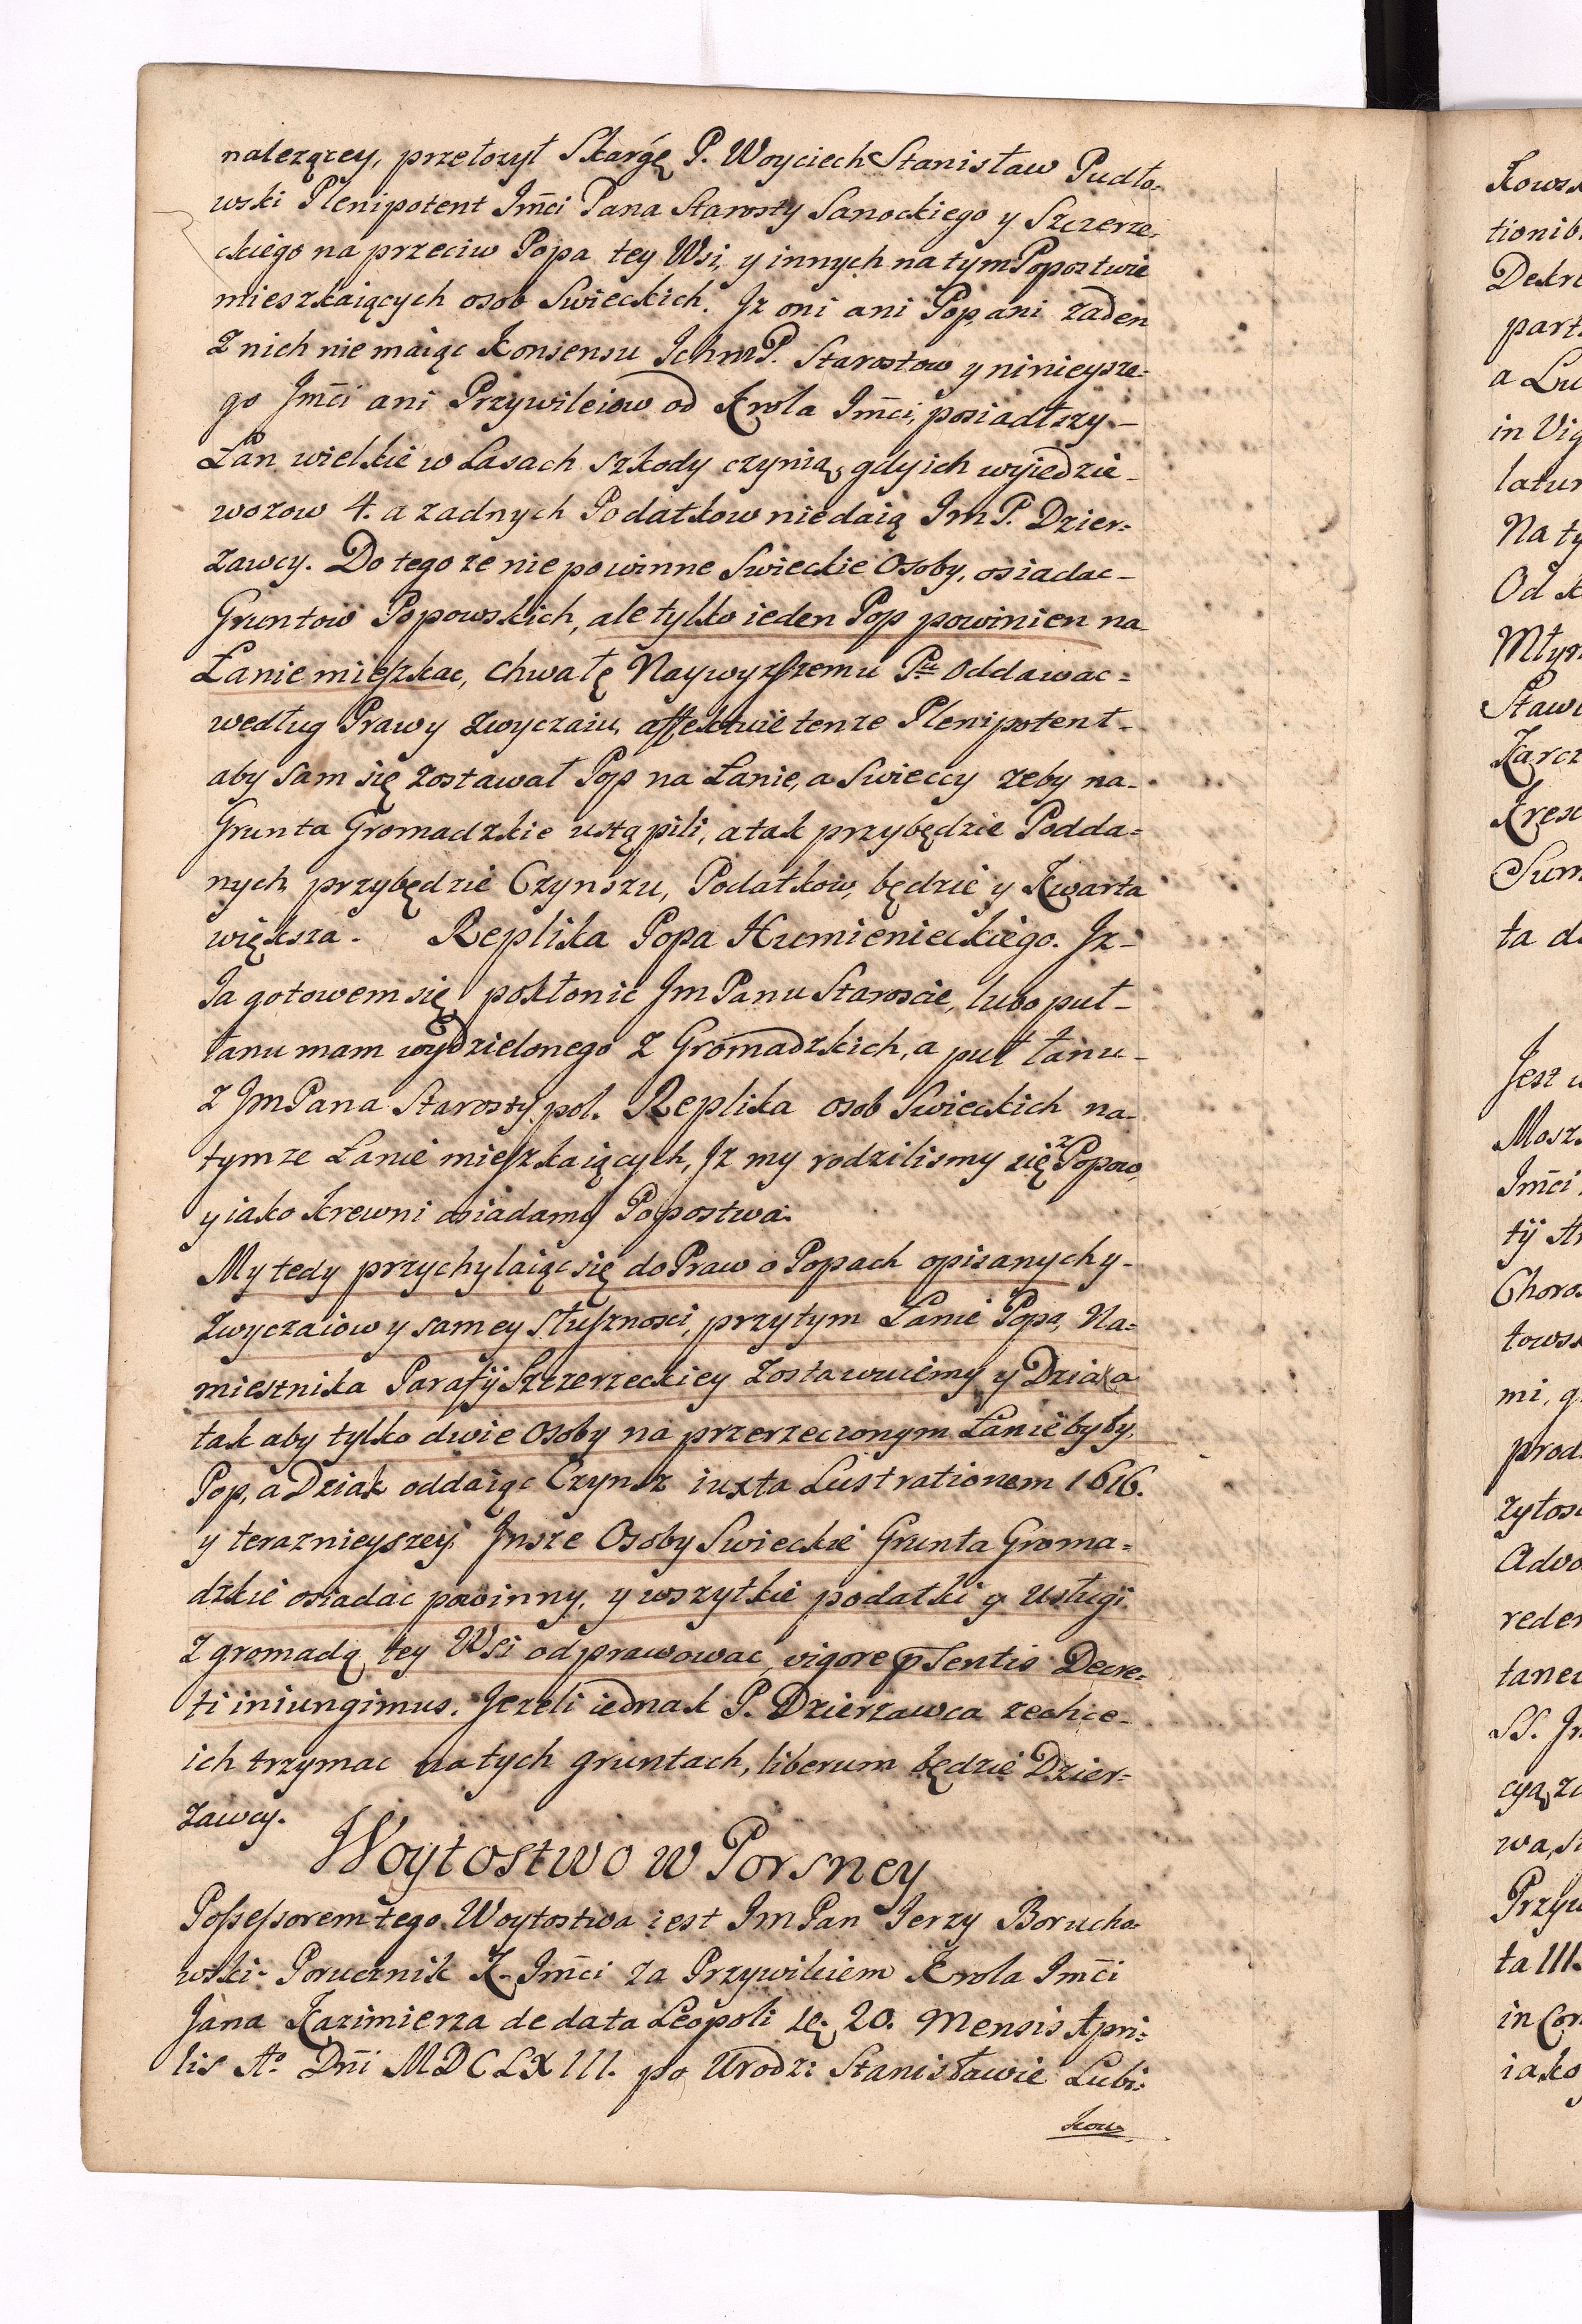 nalezącey, przełozył Skargę P. Woyciech Stanisław Pudło-
wski Plenipotent Jm̃ci Pana Starosty Sanockiego y Szczerze-
ckiego na przeciw Popa tey Wsi, y innych na tym Popostwie
mieszkaiących osob Swieckich. Jz oni ani Pop, ani zaden
z nich nie maiąc Konsensu IchmP. Starostow y ninieysze-
go Jm̃ci ani Przywileiow od Krola Jm̃ci, posiadłszy-
Łan wielkie w Lasach szkody czynią, gdy ich wyiedzie-
wozow 4. a zadnych Podatkow niedaią ImP. Dzier=
zawcy. Do tego ze nie powinne Swieckie Osoby, osiadac-
Gruntow Popowskich, ale tylko ieden Pop powinien na-
Łanie mieszkac, chwałę Naywyzszemu Pu Oddawac=
według Prawy zwyczaiu, affektuie tenze Plenipotent-
aby sam się zostawał Pop na Łanie, a Swieccy zeby na-
Grunta Gromadzkie ustąpili, a tak przybędzie Podda=
nych, przybędzie Czynszu, Podatkow, będzie y Kwarta
większa. Replika Popa Humienieckiego. Jz-
Ia gotowem się pokłonic Jm Panu Staroscie, lubo puł-
łanu mam wydzielonego z Gromadzkich, a puł łanu-
z Jm Pana Starosty pol. Replika osob Swieckich na-
tymze Łanie mieszkaiących, Jz my rodzilismy się z Popow,
y iako Krewni osiadamy Popostwa.
My tedy przychylaiąc się do Praw o Popach opisanych y-
Zwyczaiow y samey słuszności, przytym Łanie Popa, Na=
miesnika Parafij Szczerzeckiey zostawuiemy y Dziaka
tak aby tylko dwie Osoby na przerzeczonym Łanie były,
Pop, a Dziak oddaiąc Czynsz iuxta Lustrationem 1616.
y teraznieyszey. Jnsze Osoby Swieckie Grunta Groma=
dzkie osiadac powinny, y wszytkie podatki y Usługi
z gromadą tey Wsi odprawowac, vigore p̃sentis Decre=
ti iniungimus. Jezeli iednak P. Dzierzawca zechce-
ich trzymac na tych gruntach, liberum będzie Dzier=
zawcy.
Woytostwo w Porsney
Possessorem tego Woytostwa iest Jm Pan Ierzy Borucho=
wski- Porucznik K. Jm̃ci za Przywileiem Krola Jm̃ci
Jana Kazimierza de data Leopoli 20. Mensis Apri=
lis Ao. Dñi MDCLXIII. po Urodz: Stanisławie Lubi=
kow